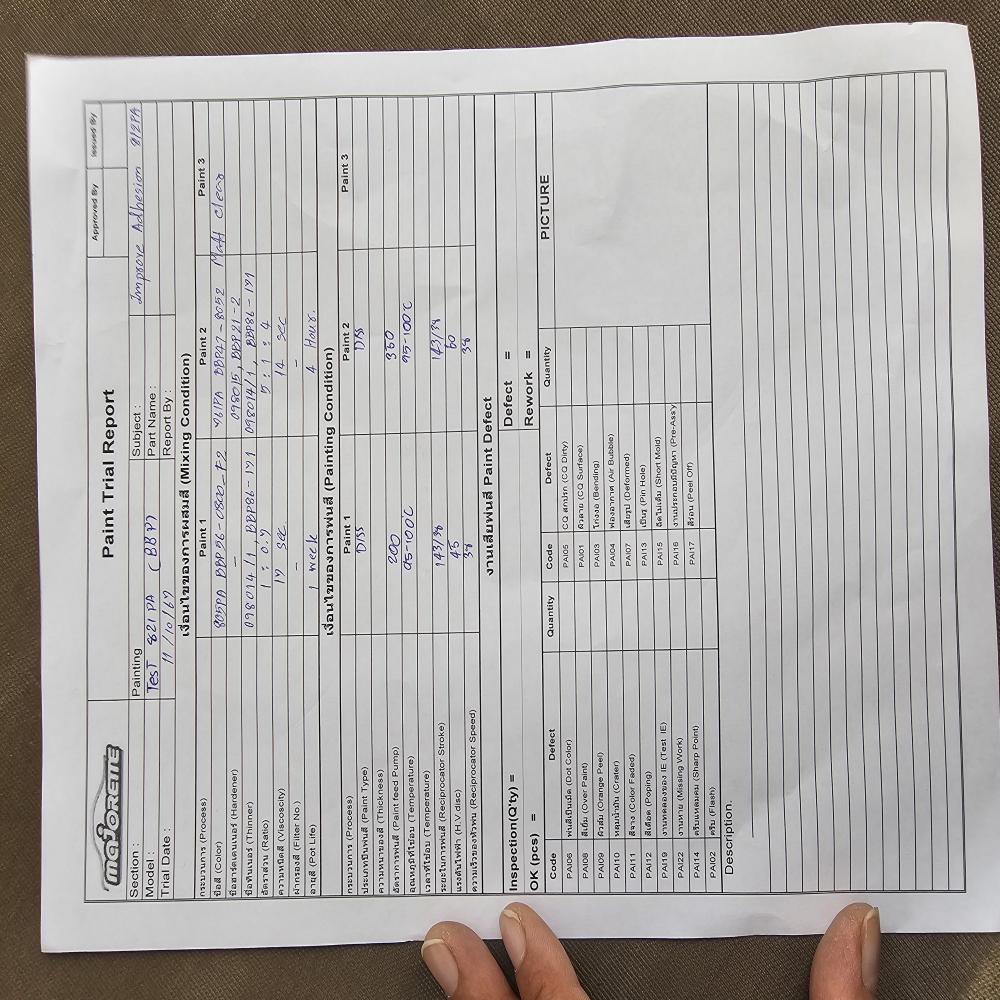 majorette
Paint Trial Report
Approved By Issued By
Section : Painting Subject : Improve Adhesion 812PA
Model : TEST 821 PA (BBP) Part Name :
Trial Date : 11/10/67 Report By :
เงื่อนไขของการผสมสี (Mixing Condition)
กระบวนการ (Process) Paint 1 Paint 2 Paint 3
ชื่อสี (Color) 805PA BBP56-0800_F2 461PA BBP47-8052 Matt Clear
ชื่อฮาร์ดเดนเนอร์ (Hardener) - 098015, BBP21-2
ชื่อทินเนอร์ (Thinner) 098014/1, BBP86-171 098014/1, BBP86-171
อัตราส่วน (Ratio) 1 : 0.7 5 : 1 : 4
ความหนืดสี (Viscosity) 17 sec 14 sec
ฝากรองสี (Filter No.) - -
อายุสี (Pot Life) 1 week 4 Hour.
เงื่อนไขของการพ่นสี (Painting Condition)
กระบวนการ (Process) Paint 1 Paint 2 Paint 3
ประเภทปืนพ่นสี (Paint Type) Diss Diss
ความหนาของสี (Thickness)
อัตราการพ่นสี (Paint feed Pump) 200 360
อุณหภูมิที่ใช้อบ (Temperature) 95-100°C 95-100°C
เวลาที่ใช้อบ (Temperature)
ระยะในการพ่นสี (Reciprocator Stroke) 143/38 143/38
แรงดันไฟฟ้า (H.V.disc) 45 60
ความเร็วของหัวพ่น (Reciprocator Speed) 38 38
งานเสียพ่นสี Paint Defect
Inspection(Q'ty) = Defect =
OK (pcs) = Rework =
Code Defect Quantity Code Defect Quantity PICTURE
PAI06 พ่นสีเป็นเม็ด (Dot Color) PAI05 CQ สกปรก (CQ Dirty)
PAI08 สีเยิ้ม (Over Paint) PAI01 ผิวลาย (CQ Surface)
PAI09 ผิวส้ม (Orange Peel) PAI03 โก่งงอ (Bending)
PAI10 หลุมน้ำมัน (Crater) PAI04 ฟองอากาศ (Air Bubble)
PAI11 สีจาง (Color Faded) PAI07 เสียรูป (Deformed)
PAI12 สีเดือด (Poping) PAI13 เป็นรู (Pin Hole)
PAI19 งานทดลองของ IE (Test IE) PAI15 ฉีดไม่เต็ม (Short Mold)
PAI22 งานหาย (Missing Work) PAI16 งานประกอบมีปัญหา (Pre-Assy
PAI14 ครีบแหลมคม (Sharp Point) PAI17 สีร่อน (Peel Off)
PAI02 ครีบ (Flash)
Description.